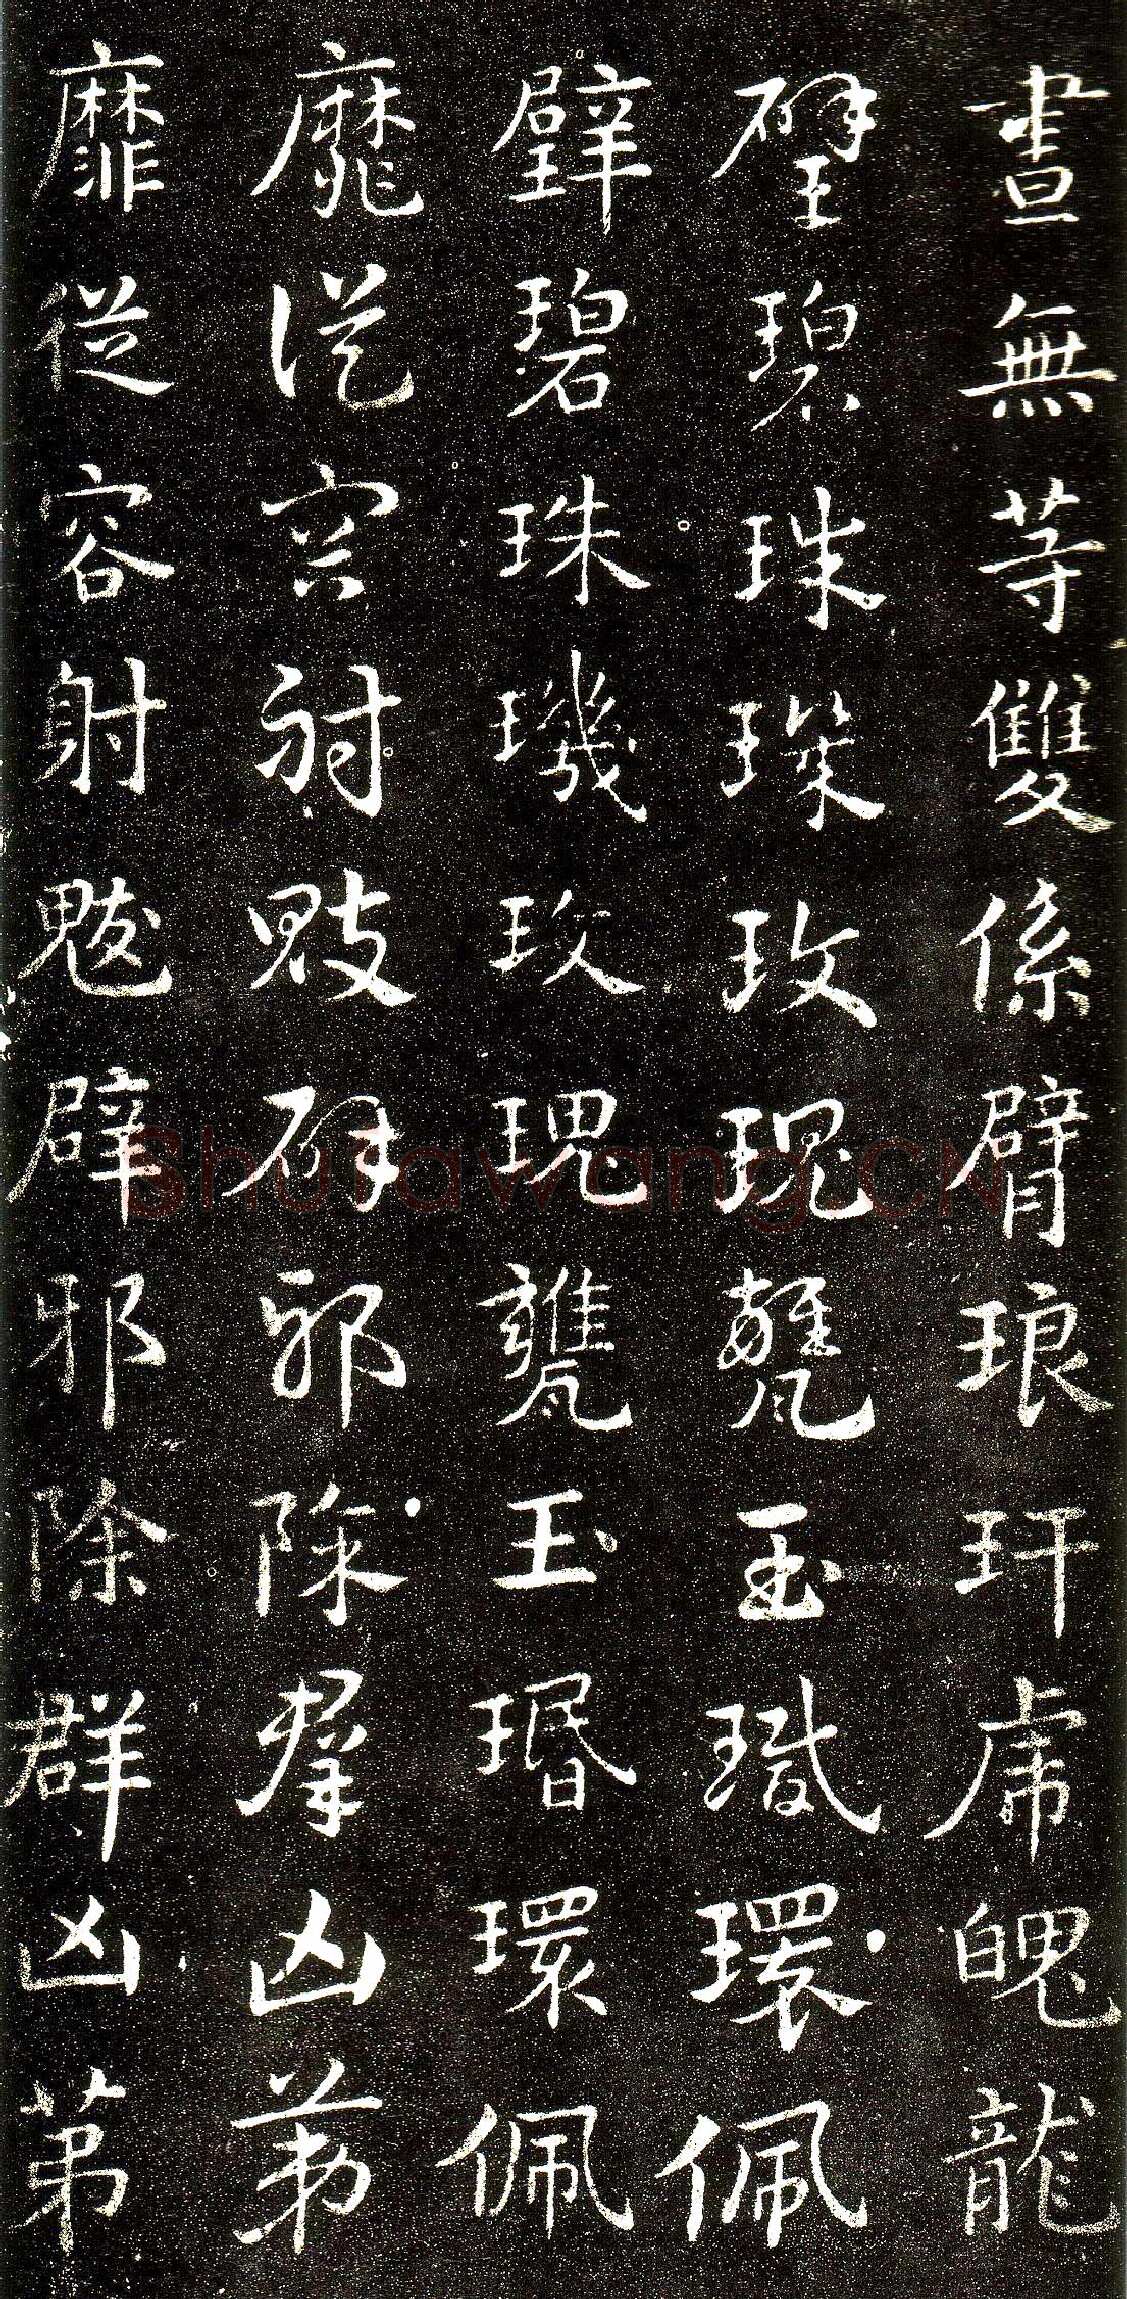 晝無等雙係臂琅玕虎魄龍
璧碧珠璣玫瑰甕玉環佩
璧碧珠璣玫瑰甕玉瑉環佩
靡從容射辟邪除群凶苐
靡從容射魃辟邪除群凶苐
Shufawang.CN